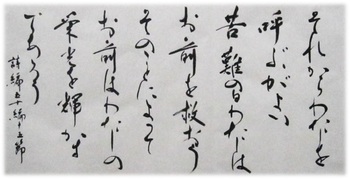 それからわたしを
呼ぶがよい
苦難の日わたしは
お前を救おう
そのことによって
お前はわたしの
栄光を輝かす
であろう
詩編五十編十五節